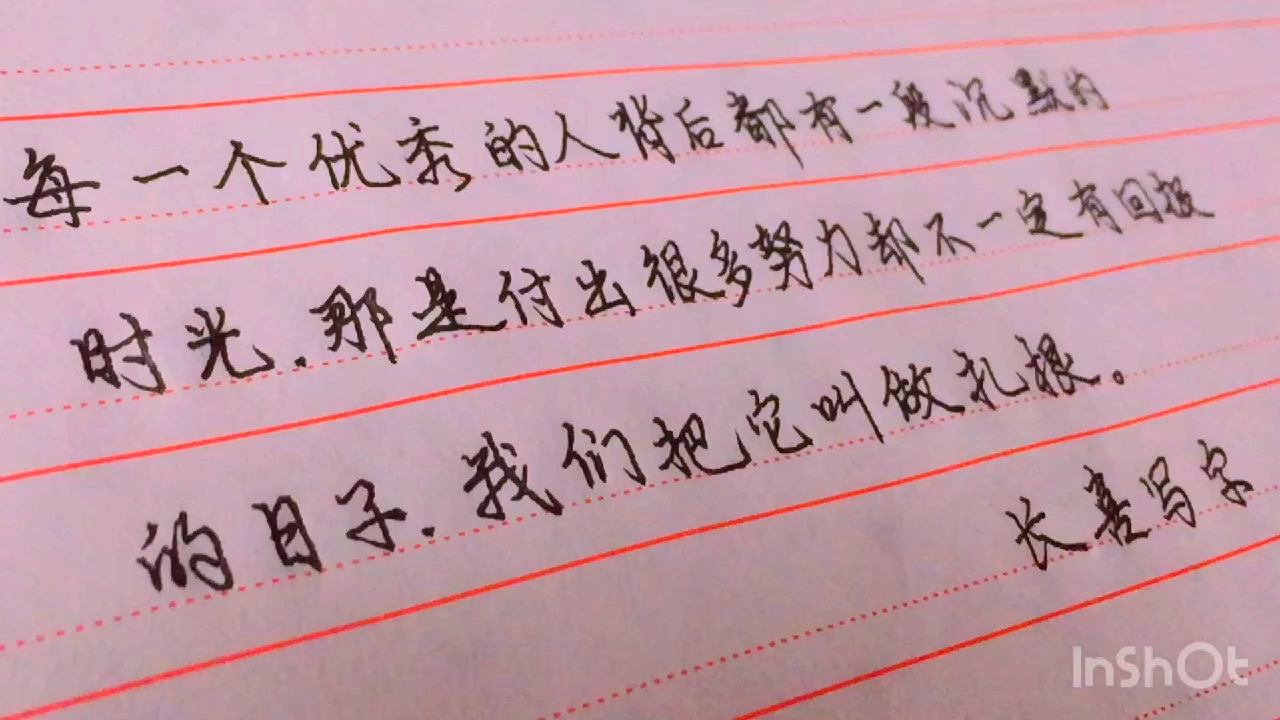 每一个优秀的人背后都有一段沉默的
时光.那是付出很多努力却不一定有回报
的日子.我们把它叫做扎根。
长喜写字
InShOt